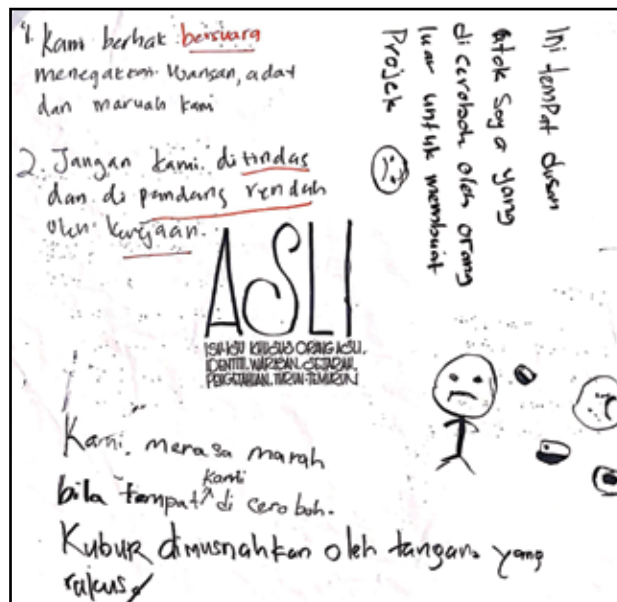 1. Kami berhak bersuara
menegakkan warisan, adat
dan maruah kami
2. Jangan kami ditindas
dan di pandang rendah
oleh kerajaan.
Ini tempat dusun
atok saya yang
di ceroboh oleh orang
luar untuk membuat
Projek
ASLI
ISU-ISU KHUSUS ORANG ASLI,
IDENTITI, WARISAN, SEJARAH,
PENGETAHUAN, TURUN-TEMURUN
Kami merasa marah
bila tempat kami di ceroboh.
Kubur dimusnahkan oleh tangan yang
rakus